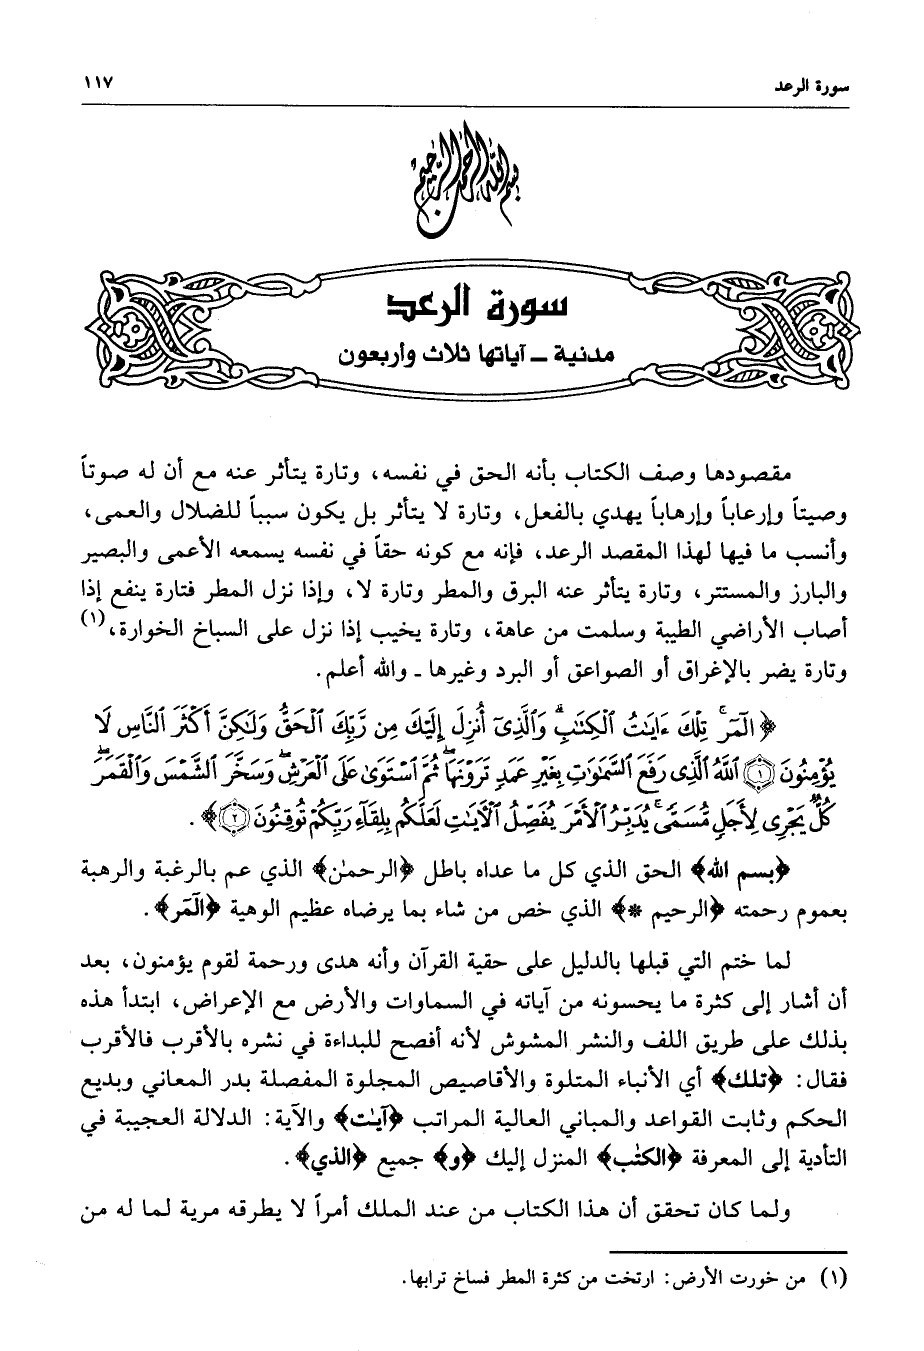 سورة الرعد ١١٧
بسم الله الرحمن الرحيم
سورة الرعد
مدنية ـ آياتها ثلاث وأربعون
مقصودها وصف الكتاب بأنه الحق في نفسه، وتارة يتأثر عنه مع أن له صوتاً
وصيتاً وإرعاباً وإرهاباً يهدي بالفعل، وتارة لا يتأثر بل يكون سبباً للضلال والعمى،
وأنسب ما فيها لهذا المقصد الرعد، فإنه مع كونه حقاً في نفسه يسمعه الأعمى والبصير
والبارز والمستتر، وتارة يتأثر عنه البرق والمطر وتارة لا، وإذا نزل المطر فتارة ينفع إذا
أصاب الأراضي الطيبة وسلمت من عاهة، وتارة يخيب إذا نزل على السباخ الخوارة،(١)
وتارة يضر بالإغراق أو الصواعق أو البرد وغيرها ـ والله أعلم.
﴿الٓمٓرۚ تِلْكَ ءَايَٰتُ ٱلْكِتَٰبِۗ وَٱلَّذِىٓ أُنزِلَ إِلَيْكَ مِن رَّبِّكَ ٱلْحَقُّ وَلَٰكِنَّ أَكْثَرَ ٱلنَّاسِ لَا
يُؤْمِنُونَ ١ ٱللَّهُ ٱلَّذِى رَفَعَ ٱلسَّمَٰوَٰتِ بِغَيْرِ عَمَدٍ تَرَوْنَهَاۖ ثُمَّ ٱسْتَوَىٰ عَلَى ٱلْعَرْشِۖ وَسَخَّرَ ٱلشَّمْسَ وَٱلْقَمَرَۖ
كُلٌّ يَجْرِى لِأَجَلٍ مُّسَمًّىۚ يُدَبِّرُ ٱلْأَمْرَ يُفَصِّلُ ٱلْءَايَٰتِ لَعَلَّكُم بِلِقَآءِ رَبِّكُمْ تُوقِنُونَ ٢﴾.
﴿بسم الله﴾ الحق الذي كل ما عداه باطل ﴿الرحمٰن﴾ الذي عم بالرغبة والرهبة
بعموم رحمته ﴿الرحيم *﴾ الذي خص من شاء بما يرضاه عظيم الوهية ﴿الٓمٓر﴾.
لما ختم التي قبلها بالدليل على حقية القرآن وأنه هدى ورحمة لقوم يؤمنون، بعد
أن أشار إلى كثرة ما يحسونه من آياته في السماوات والأرض مع الإعراض، ابتدأ هذه
بذلك على طريق اللف والنشر المشوش لأنه أفصح للبداءة في نشره بالأقرب فالأقرب
فقال: ﴿تلك﴾ أي الأنباء المتلوة والأقاصيص المجلوة المفصلة بدر المعاني وبديع
الحكم وثابت القواعد والمباني العالية المراتب ﴿آيٰت﴾ والآية: الدلالة العجيبة في
التأدية إلى المعرفة ﴿الكتٰب﴾ المنزل إليك ﴿و﴾ جميع ﴿الذي﴾.
ولما كان تحقق أن هذا الكتاب من عند الملك أمراً لا يطرقه مرية لما له من
(١) من خورت الأرض: ارتخت من كثرة المطر فساخ ترابها.